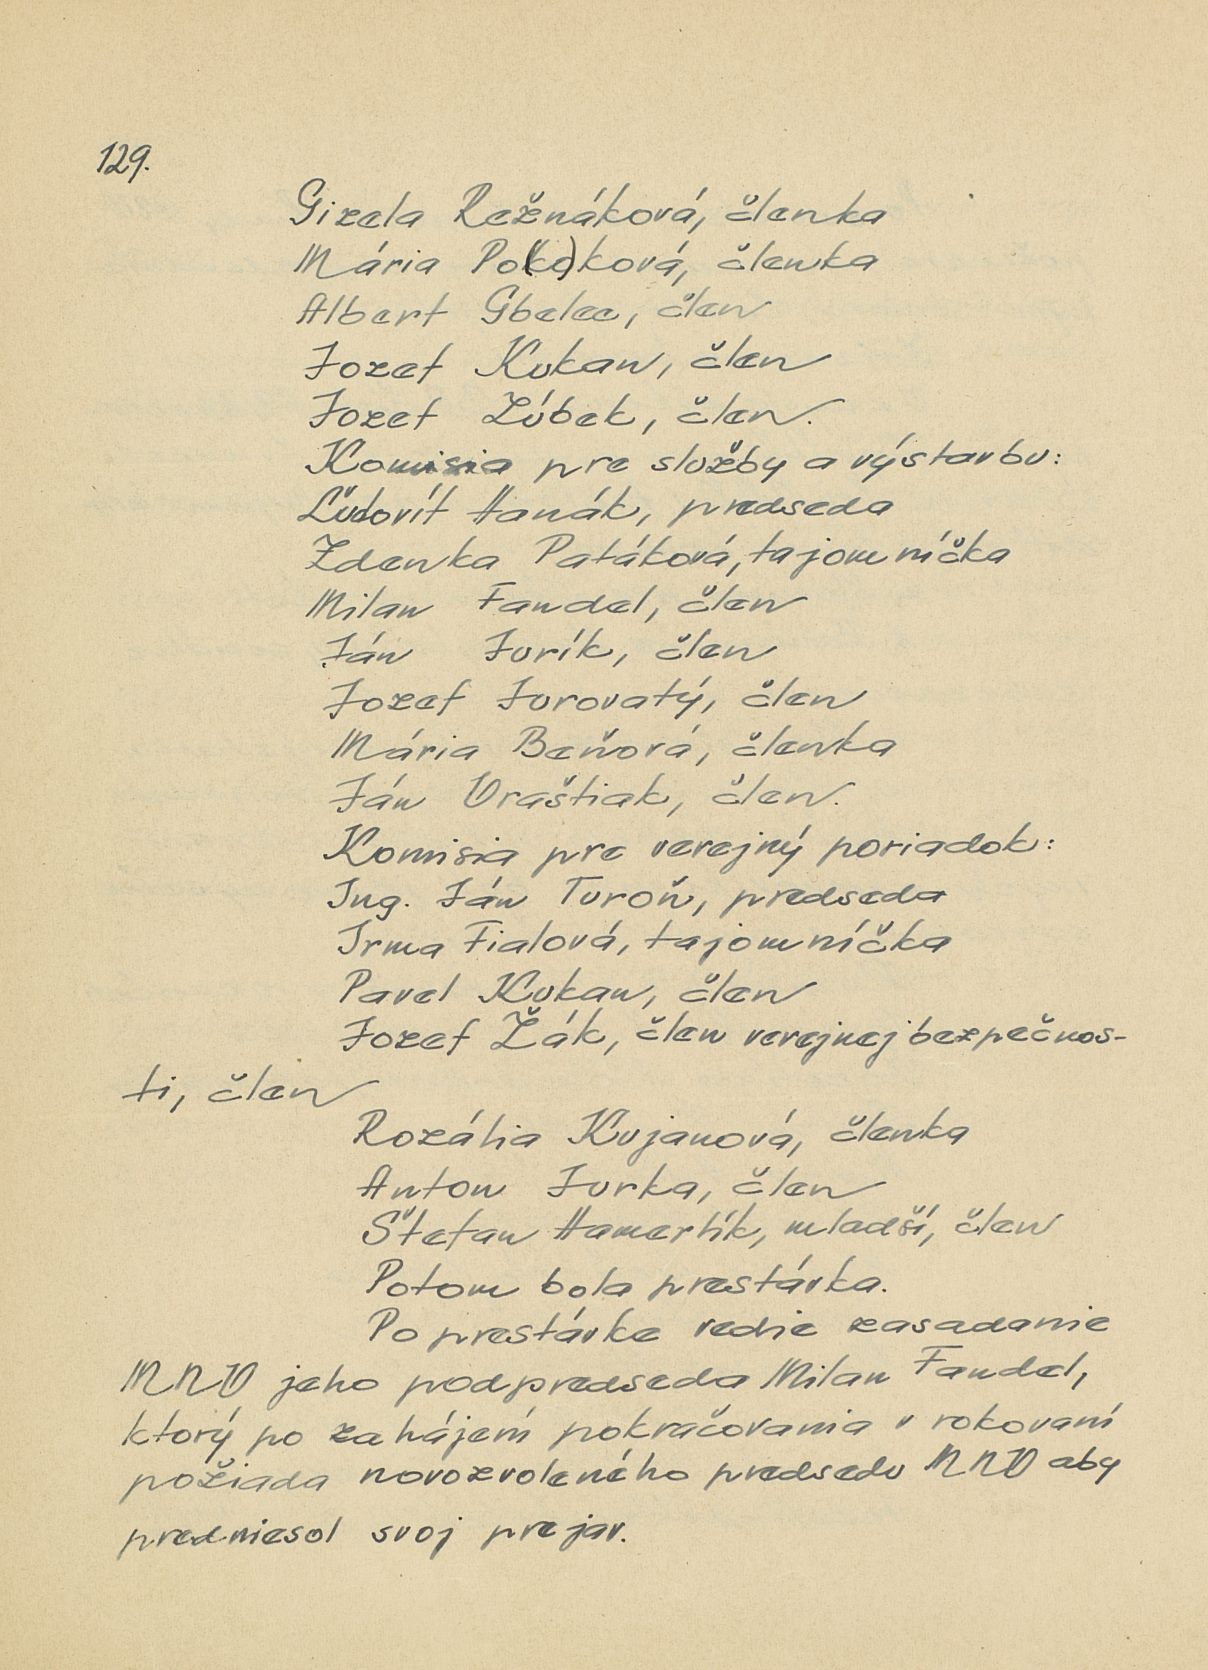 129.
Gizela Režnáková, členka
Mária Po(ko)ková, členka
Albert Gbelec, člen
Jozef Kukan, člen
Jozef Zúbek, člen.
Komisia pre služby a výstavbu:
Ľudovít Hanák, predseda
Zdenka Patáková, tajomníčka
Milan Fandel, člen
Ján Jurík, člen
Jozef Jurovatý, člen
Mária Beňová, členka
Ján Vraštiak, člen.
Komisia pre verejný poriadok:
Ing. Ján Turoň, predseda
Irma Fialová, tajomníčka
Pavel Kukan, člen
Jozef Žák, člen verejnej bezpečnos-
ti, člen
Rozália Kujanová, členka
Anton Jurka, člen
Štefan Hamerlík, mladší, člen
Potom bola prestávka.
Po prestávke vedie zasadanie
MNV jeho podpredseda Milan Fandel,
ktorý po zahájení pokračovania v rokovaní
požiada novozvoleného predsedu MNV aby
predniesol svoj prejav.